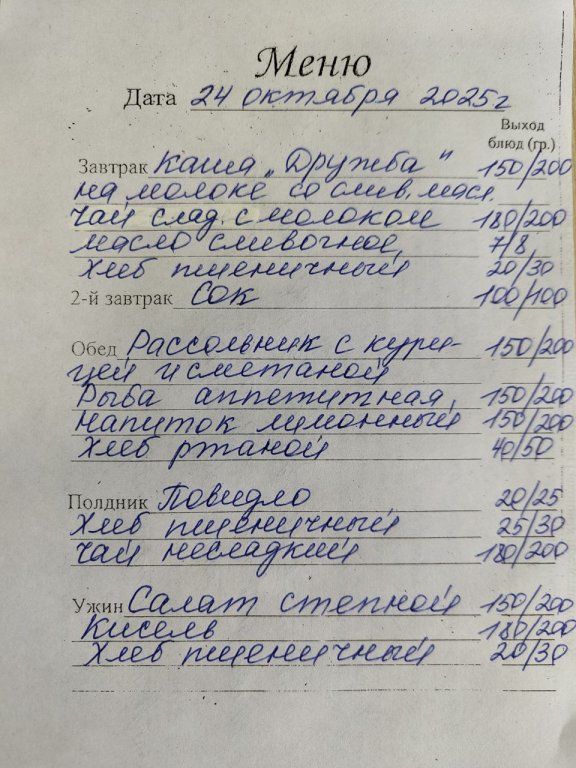 Меню
Дата 24 октября 2025г
Выход
блюд (гр.)
Завтрак Каша „Дружба" 150/200
на молоке со слив. масл.
Чай слад. с молоком 180/200
масло сливочное 7/8
Хлеб пшеничный 20/30
2-й завтрак Сок 100/100
Обед Рассольник с кури- 150/200
цей и сметаной
Рыба аппетитная 150/200
Напиток лимонный 150/200
Хлеб ржаной 40/50
Полдник Повидло 20/25
Хлеб пшеничный 25/30
Чай несладкий 180/200
Ужин Салат степной 150/200
Кисель 180/200
Хлеб пшеничный 20/30